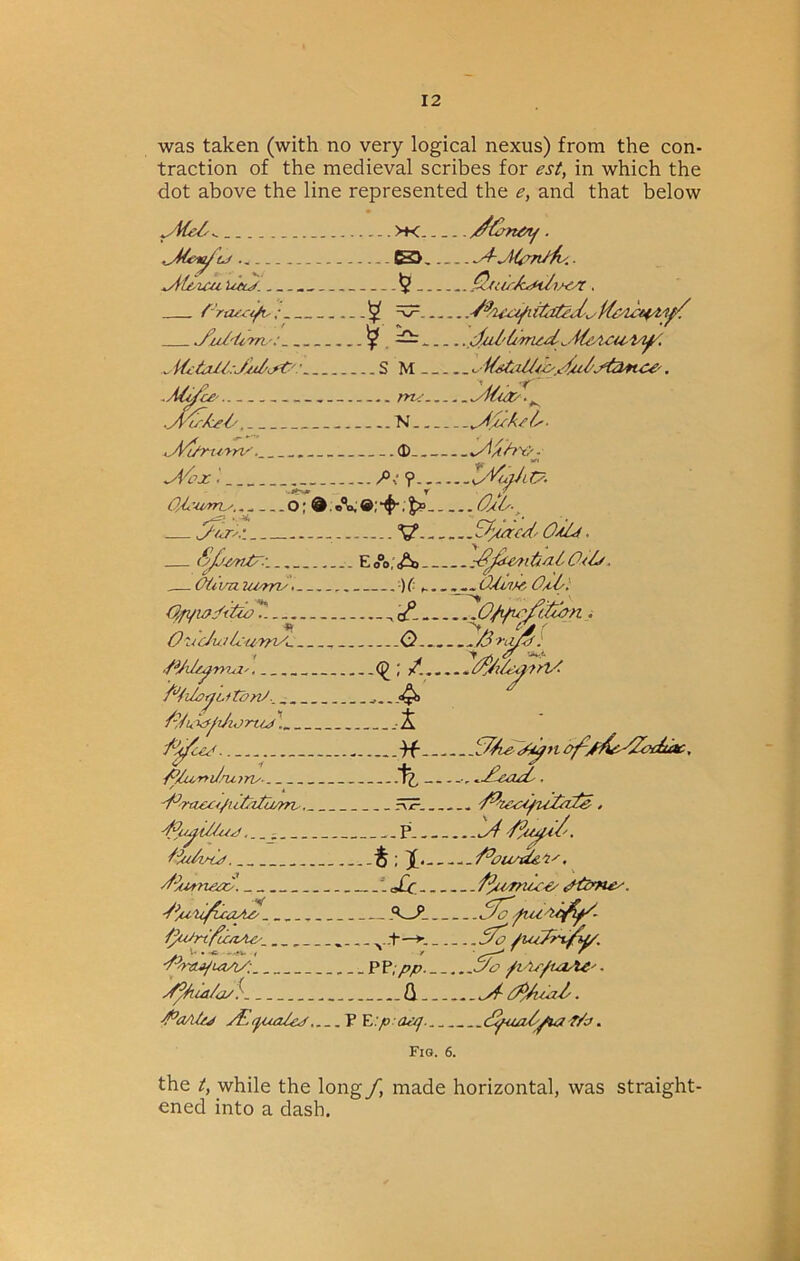 12
was taken (with no very logical nexus) from the con-
traction of the medieval scribes for est, in which the
dot above the line represented the e, and that below
Mel. Honey.
Mensis A Month.
Mercurius. ☿ Quicksilver.
Præcip: ☿ Precipitated Mercury.
Sublim: ☿ Sublimed Mercury.
Metall: Subst: S M Metallic Substance.
Misce. m. Mix.
Nickel. N Nickel.
Nitrum. Nitre.
Nox: Night.
Oleum. O; Oil.
Fix: Fixed Oils.
Essent: E Essential Oils.
Olivarum. Olive Oil.
Opposition.
Orichalcum. Brass.
Phlegma. Phlegm.
Pisces. ♓ The Sign of the Zodiac.
Plumbum. Lead.
Præcipitatum. Precipitate.
Pugillus. P. A Pugil.
Pulvis. Powder.
Pumex. Pumice stone.
Purificare. To purify.
Putrificare. To putrify.
Præparare. PP; pp. To prepare.
Phiala. A Phial.
Partes Æquales. P E: p: aeq. Equal parts.
FIG. 6.
the t, while the long f, made horizontal, was straight-
ened into a dash.